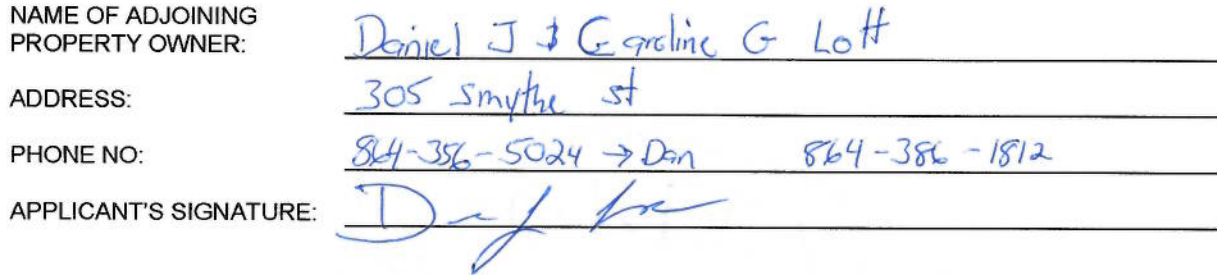 NAME OF ADJOINING
PROPERTY OWNER: Daniel J & Caroline G Lott
ADDRESS: 305 Smythe st
PHONE NO: 864-356-5024 → Dan 864-386-1812
APPLICANT'S SIGNATURE: